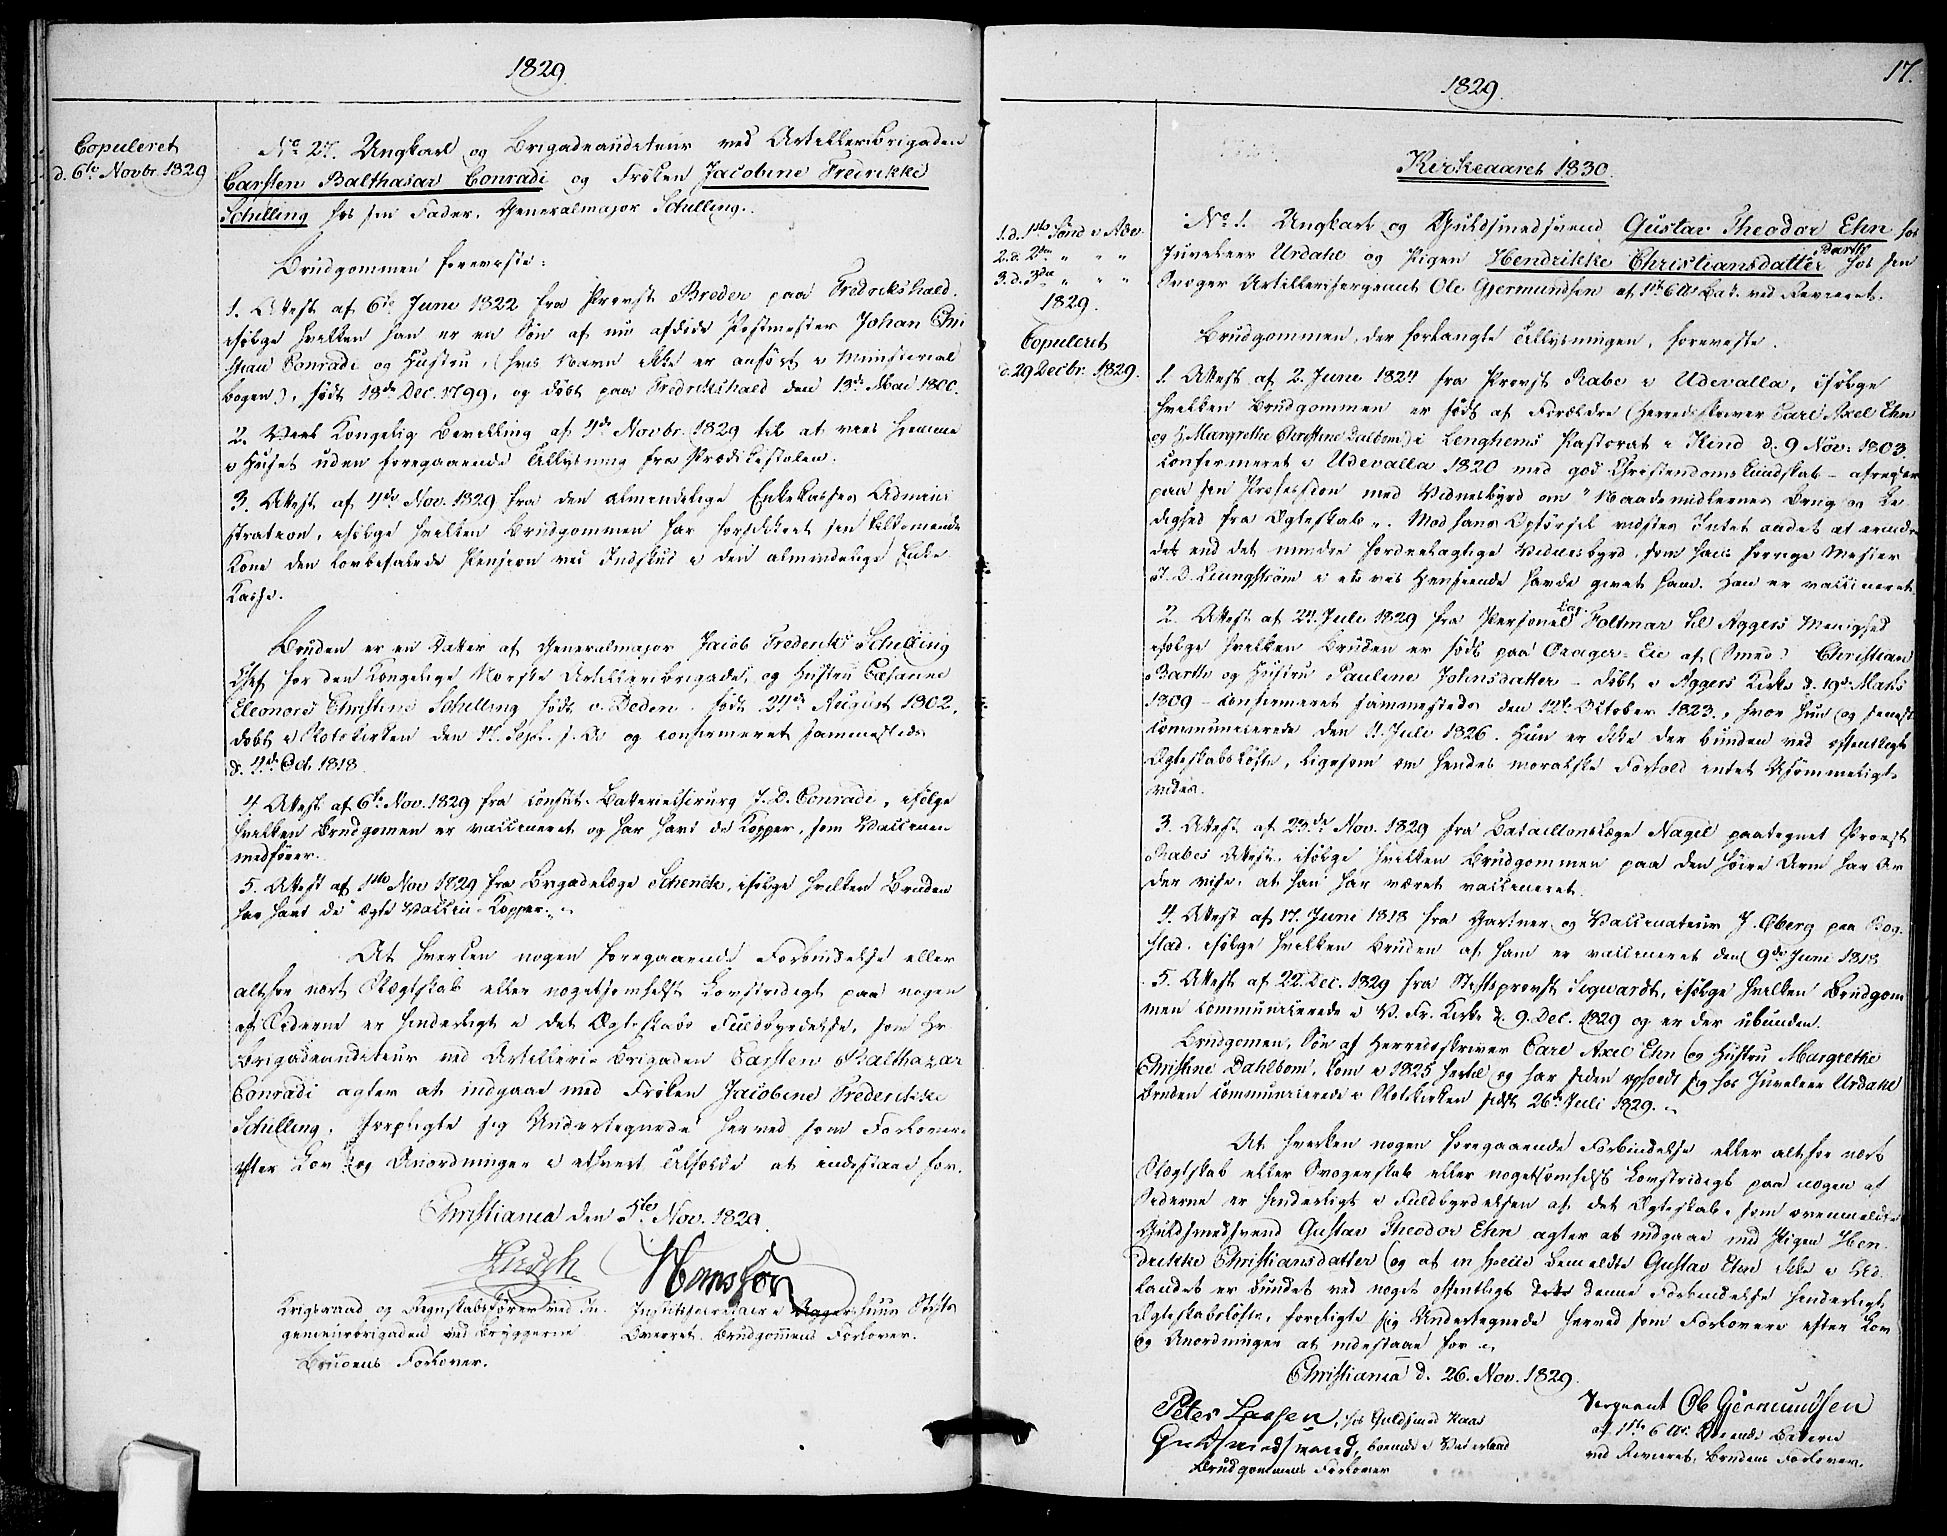 1829.
Copuleret
d. 6te Novbr. 1829
No 27. Ungkarl og Brigadeauditeur ved Artilleribrigaden
Carsten Balthasar Conradi og Frøken Jacobine Fredrikke
Schilling hos sin Fader, Generalmajor Schilling.
Brudgommen foreviste:
1. Attest af 6te Juni 1822 fra Provst Breder paa Fredrikshald,
ifølge hvilken han er en Søn af nu afdøde Postmester Johan Chri
stian Conradi og Hustru, (hvis Navn ikke er anført i Ministerial
bogen), født 18de Dec. 1799, og døbt paa Fredrikshald den 13de Mai 1800.
2. Kongelig Bevilling af 4de Novbr. 1829 til at vies hjemme
i Huset uden foregaaende Tillysning fra Prædikestolen.
3. Attest af 4de Nov. 1829 fra den almindelige Enkekasses Admini
stration, ifølge hvilken Brudgommen har forsikkret sin tilkommende
Kone den lovbefalede Pension ved Indskud i den almindelige Enke
Kasse.
Bruden er en Datter af Generalmajor Jacob Frederik Schilling
Chef for den Kongelige Norske Artilleribrigade, og Hustru
Eleonore Christine Schilling født v. Deden. født 24de August 1802,
døbt i Slotskirken den 17. Sept. s. A. og confirmeret sammesteds
d. 4de Oct. 1818.
4. Attest af 6te Nov. 1829 fra const. Batteriechirurg J. D. Conradi, ifølge
hvilken Brudgommen er vaccineret og har havt de Kopper, som Vaccinen
medfører.
5. Attest af 1ste Nov 1829 fra Brigadelæge Schenck, ifølge hvilken Bruden
har havt de ægte Vaccin-Kopper.
At hverken nogen foregaaende Forbindelse eller
altfor nært Slægtskab eller nogetsomhelst Lovstridigt paa nogen
af Siderne er hinderligt i det Ægteskabs Fuldbyrdelse, som Hr.
Brigadeauditeur ved Artilleri-Brigaden Carsten Balthazar
Conradi agter at indgaae med Frøken Jacobine Frederikke
Schilling, forpligte sig Undertegnede herved som Forlovere
efter Lov og Anordninger i ethvert Tilfælde at indestaae for.
Christiania den 5te Nov. 1829.
Krigsraad og Regnskabsfører ved In-
genieurbrigaden ved Bryggerne
Brudens Forlover.
Justitssecretair i Aggershuus Stifts
Overret. Brudgommens Forlover.
17.
1829.
Kirkeaaret 1830.
1. d. 1ste Sønd i Adv.
2. d. 2den " " "
3. d. 3die " " "
1829.
Copuleret
d. 29 Decbr. 1829.
No 1. Ungkarl og Guldsmedsvend Gustav Theodor Ehn hos
Juveleer Urdahl og Pigen Hendrikke Christiansdatter Barth hos sin
Svoger Artillerisergeant Ole Gjermundsen af 1ste 6 Bat. ved Revieret.
Brudgommen, der forlangte Tillysningen, foreviste.
1. Attest af 2. Juni 1824 fra Provst Rabe i Udevalla, ifølge
hvilken Brudgommen er født af Forældre (Herredsskriver Carl Axel Ehn
og H. Margrethe Christine Dalbom) i Lenghems Pastorat i Kind d. 9 Nov. 1803.
confirmeret i Udevalla 1820 med god Christendomskundskab - afreiser
paa sin Profession med Vidnesbyrd om "Naademidlernes Brug og Le
dighed fra Ægteskab". Mod hans Opførsel vidstes Intet andet at erindre
det end det mindre fordeelagtige Vidnesbyrd, som hans forrige Mester
J. D. Liungstrøm i et vist Henseende havde givet ham. Han er vaccineret
2. Attest af 24. Juli 1829 fra Personel Cap. Foltmar til Aggers Menighed
ifølge hvilken Bruden er født paa Orager-Eie af (Smed) Christian
Barth og Hustru Pauline Johnsdatter - døbt i Aggers Kirke d. 19de Marts
1809 - confirmeret sammesteds den 12te Oktober 1823, hvor hun og senest
communicerede den 4 Juli 1826. Hun er ikke der bunden ved offentligt
Ægteskabsløfte, ligesom om hendes moralske Forhold intet Usømmeligt
vides.
3. Attest af 23de Nov. 1829 fra Bataillonslæge Nagel paategnet Provst
Rabes Attest, ifølge hvilken Brudgommen paa den høire Arm har Ar
der vise, at han har været vaccineret.
4. Attest af 17. Juni 1818 fra Gartner og Vaccinateur J. Øberg paa Bog-
stad, ifølge hvilken Bruden af ham er vaccineret den 9de Juni 1818
5. Attest af 22. Dec. 1829 fra Stiftsprovst Sigwardt, ifølge hvilken Brudgom
men communicerede i V. Fr. Kirke d. 9. Dec. 1829 og er der ubunden.
Brudgommen, Søn af Herredsskriver Carl Axel Ehn og Hustru Margrethe
Christine Dahlbom, kom i 1825 hertil og har siden opholdt sig hos Juveleer Urdahl
Bruden communicerede i Slotskirken sidst 26de Juli 1829.
At hverken nogen foregaaende Forbindelse eller altfor nært
Slægtskab eller Svogerskab eller nogetsomhelst Lovstridigt paa nogen af
Siderne er hinderligt i Fuldbyrdelsen af det Ægteskab, som ovenmeldte
Guldsmedsvend Gustav Theodor Ehn agter at indgaae med Pigen Hen-
drikke Christiansdatter og at in specie bemeldte Gustav Ehn ikke i Ud-
landet er bundet ved noget offentligt denne Forbindelse hinderligt
Ægteskabsløfte, forpligte sig Undertegnede herved som Forlovere efter Lov
og Anordninger at indestaae for.
Christiania d. 26. Nov. 1829.
Peter Larsen, hos Guldsmed Haas
Guldsmedsvend, boende i Vaterland
Brudgommens Forlover
Sergeant Ole Gjermundsen
af 1ste 6 Batterie
ved Revieret, Brudens Forlover.